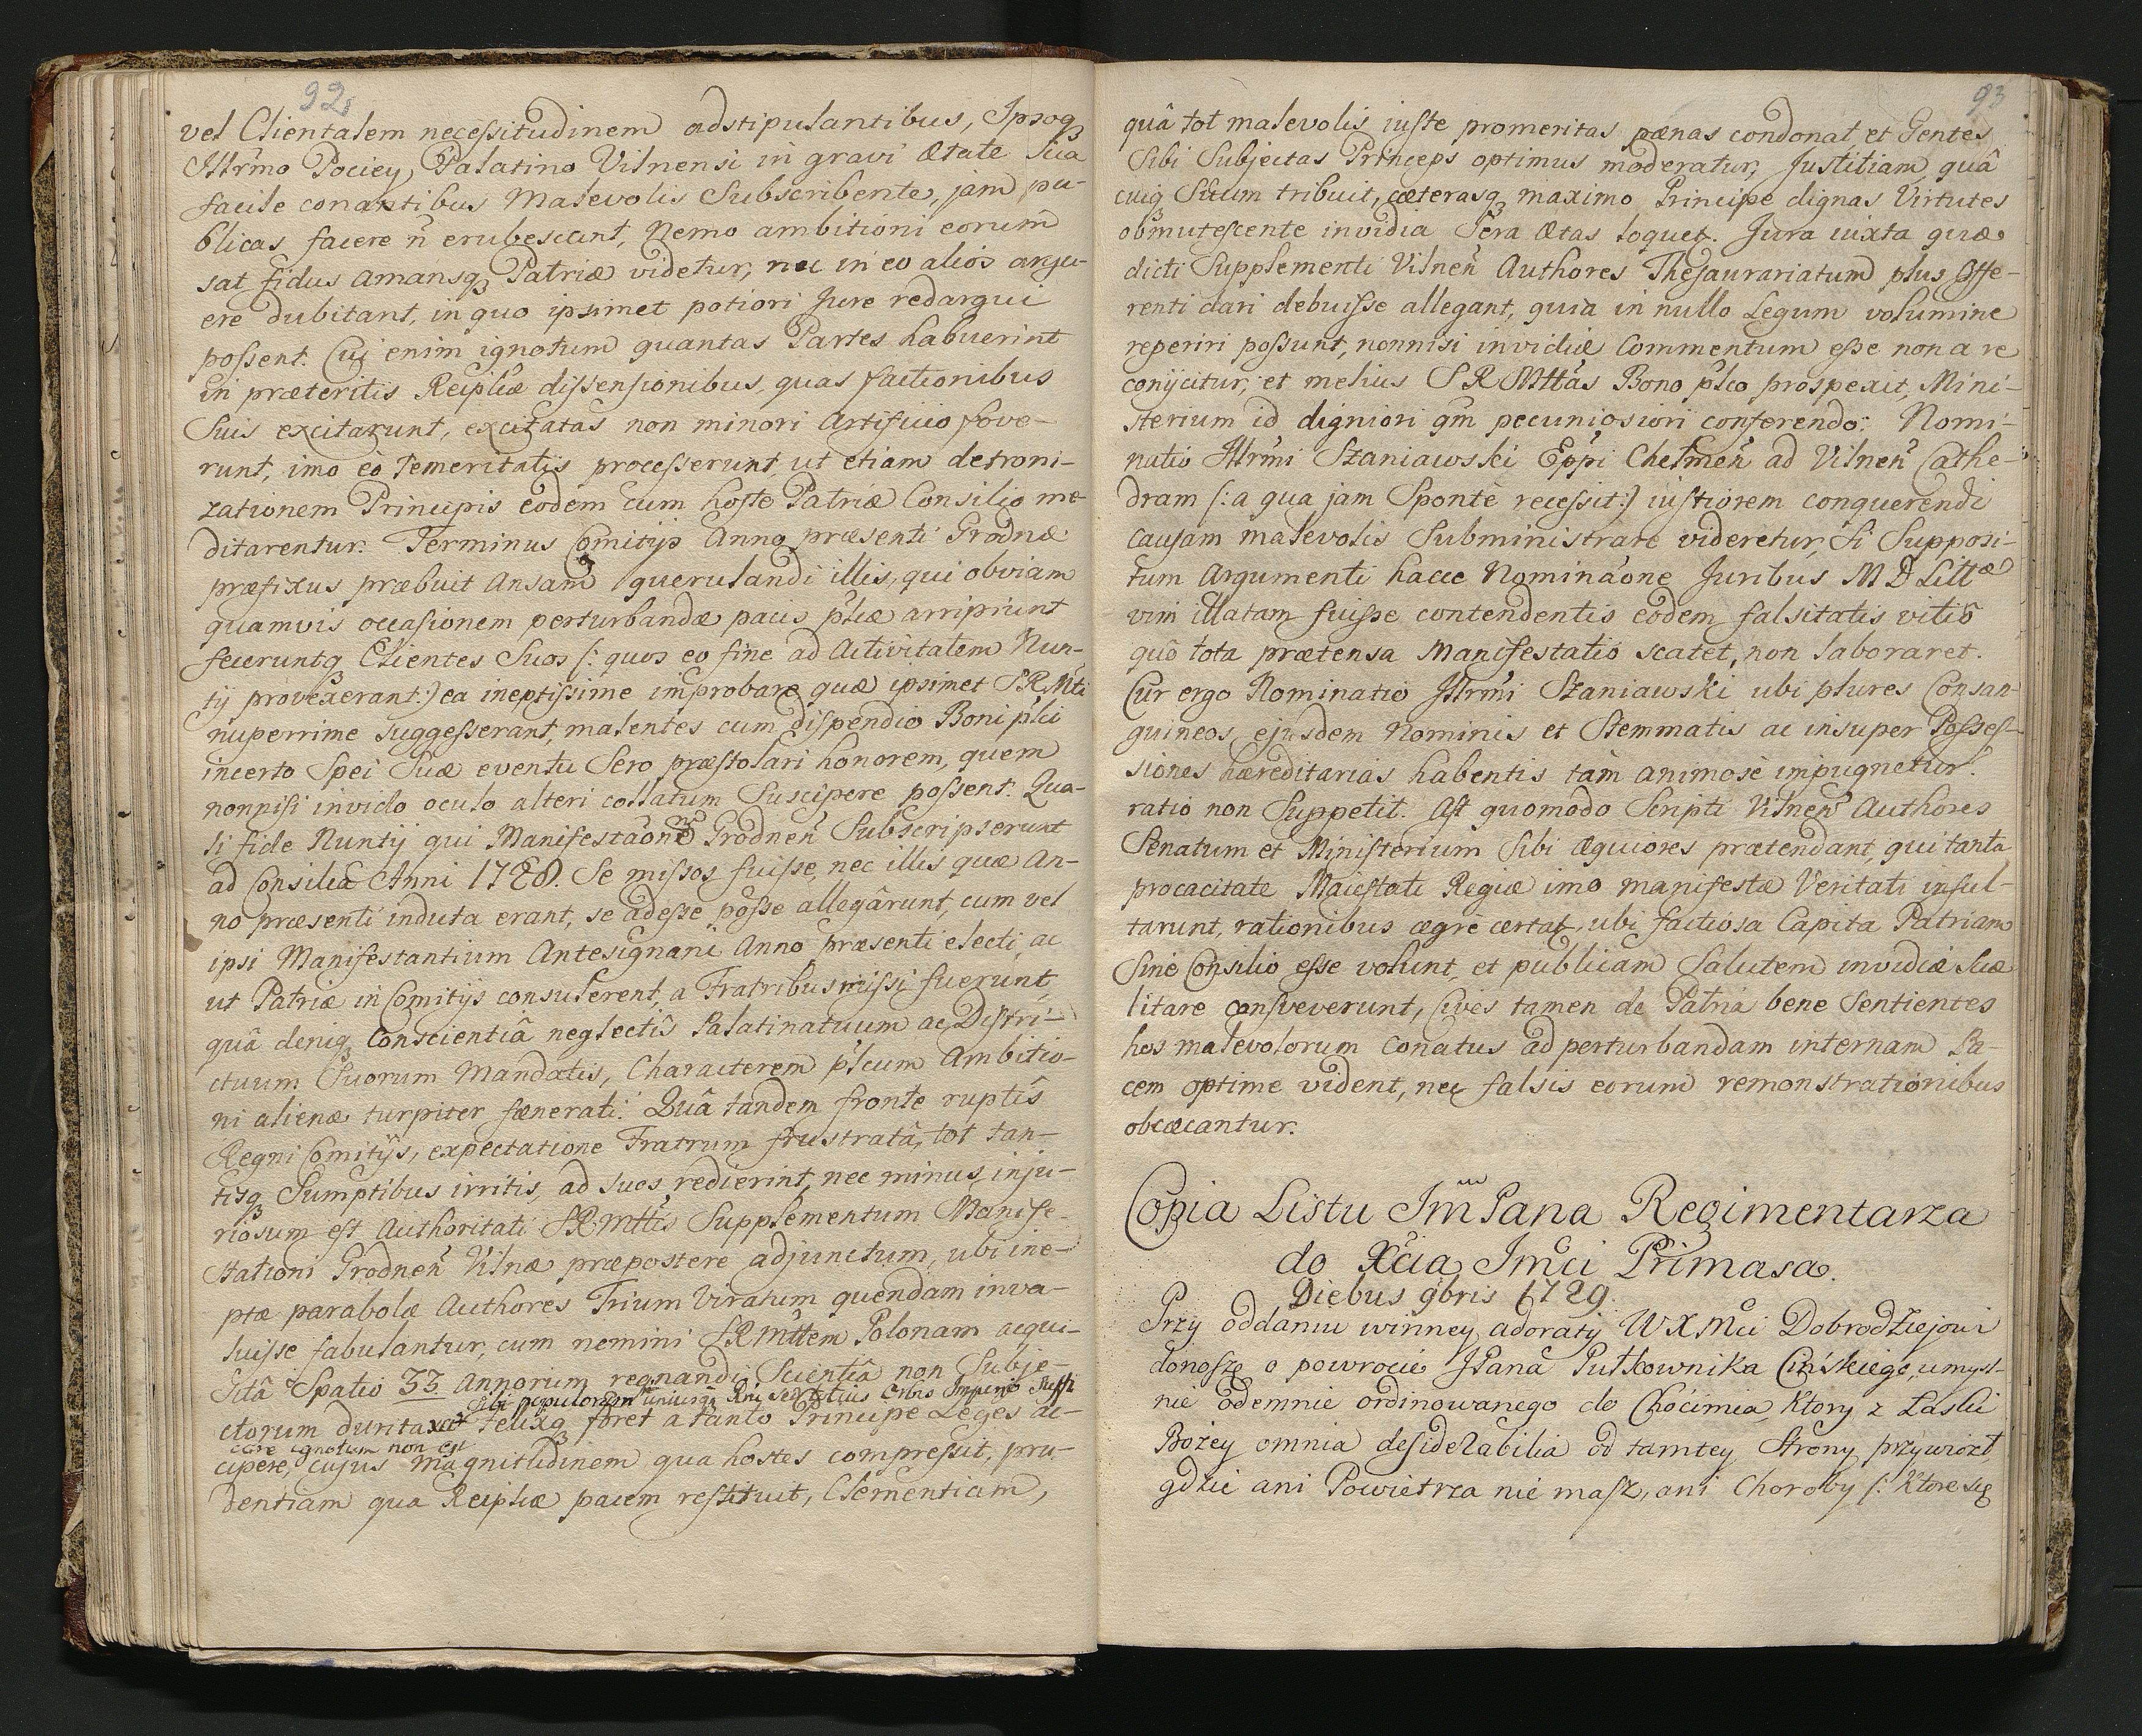 92
vel Clientalem necessitudinem adstipulantibus, Ipsoq3
Illrmo Pociey, Palatino Vilnensi in gravi ætate sua
facile conantibus Malevolis Subscribente, jam pu-
blicas facere n̄ erubescunt, Nemo ambitioni eorum
sat fidus amansq3 Patriæ videtur, nec in eo alios argu-
ere dubitant, in quo ipsimet potiori Jure redargui
possent. Cui enim ignotum quantas Partes habuerint
in præteritis Reiplcæ dissensionibus, quas factionibus
Suis excitarunt, excitatas non minori Artificio fove-
runt, imo eò Temeritatis processerunt, ut etiam detroni-
zationem Principis eodem cum hoste Patriæ Consilio me-
ditarentur. Terminus Comitijs Anno præsenti Grodnæ
præfixus præbuit Ansam querulandi illis, qui obviam
quamvis occasionem perturbandæ pacis plcæ arripiunt
feceruntq3 Clientes Suos /: quos eo fine ad Activitatem Nun-
tij provexerant :/ ea ineptissime improbare quæ ipsimet SRMti
nuperrime suggesserant, malentes cum dispendio Boni plci
incerto Spei Suæ eventu Sero præstolari honorem, quem
nonnisi invido oculo alteri collatum Suscipere possent. Qua-
si fide Nuntij qui Manifestaōnē Grodnen̄ Subscripserunt
ad Consilia Anni 1728. Se missos fuisse, nec illis quæ An-
no præsenti induta erant, se adesse posse allegârunt, cum vel
ipsi Manifestantium Antesignani Anno præsenti electi, ac
ut Patriæ in Comitijs consulerent, a Fratribus missi fuerunt,
quâ deniq3 Conscientiâ neglectis Palatinatuum ac Distri-
ctuum Suorum Mandatis, Characterem plcum Ambitio-
ni alienæ turpiter fænerati. Quâ tandem fronte ruptis
Regni Comitijs, expectatione Fratrum frustratâ, tot tan-
tisq3 Sumptibus irritis, ad suos redierint, nec minus inju-
riosum est Authoritati SRMttis Supplementum Manife-
stationi Grodnen̄ Vilnæ præpostere adjunctum, ubi ine-
ptæ parabolæ Authores Trium Viratum quendam inva-
luisse fabulantur, cum nemini SRMttem Polonam acqui-
sitâ Spatio 33 Annorum regnandi Scientiâ non Subje-
Sibi populorum
ctorum duntaxat felixq3 foret a tanto Principe Leges ac-
cipere, cujus Magnitudinem qua hostes compressit, pru-
dentiam qua Reiplcæ pacem restituit, Clementiam,
93
quâ tot malevolis iuste promeritas pænas condonat et Gentes
Sibi Subjectas Princeps optimus moderatur, Justitiam, quâ
cuiq3 Suum tribuit, cæterasq3 maximo Principe dignas Virtutes
obmutescente invidia Sera ætas loquet. Jura iuxta quæ
dicti Supplementi Vilnen̄ Authores Thesaurariatum plus Offe-
renti dari debuisse allegant, quia in nullo Legum volumine
reperiri possunt, nonnisi invidiæ Commentum esse non a re
conijcitur, et melius SRMttas Bono plco prospexit, Mini-
sterium id digniori qm̄ pecuniosiori conferendo. Nomi-
natio Illrmi Szaniawski Eppi Chelmen̄ ad Vilnen̄ Cathe-
dram /: a qua jam Sponte recessit :/ iustiorem conquerendi
Causam malevolis Subministrare videretur, Si Supposi-
tum Argumenti hacce Nominaōne Juribus M D Littæ
vim illatam fuisse contendentis eodem falsitatis vitio
quô tota prætensa Manifestatio scatet, non laboraret.
Cur ergo Nominatio Illrmi Szaniawski ubi plures Consan-
guineos, ejusdem Nominis et Stemmatis ac insuper Posses-
siones hæreditarias habentis tàm animosè impugnetur.
ratio non Suppetit. Ast quomodo Scripti Vilnen̄ Authores
Senatum et Ministerium Sibi æquiores prætendant, qui tanta
procacitate Maiestati Regiæ imo manifestæ Veritati insul-
tarunt, rationibus ægre certat, ubi factiosa Capita Patriam
Sine Consilio esse volunt, et publicam Salutem invidiæ Suæ
litare consveverunt, Cives tamen de Patria bene Sentientes
hos malevolorum conatus ad perturbandam internam Pa-
cem optime vident, nec falsis eorum remonstrationibus
obcæcantur.
Copia Listu Jm̄ Pana Regimentarza
do Xcia Jmci Primasa.
Diebus 9bris 1729.
Przy oddaniu winney adoratij WXMci Dobrodzieiowi
donoszę o powrocie JPana Pułkownika Cińskiego, umyśl-
nie odemnie ordinowanego do Chocimia, Ktory z Łaski
Bożey omnia desiderabilia od tamtey Strony przywiozł,
gdzie ani Powietrza nie masz, ani Choroby /: Ktore się